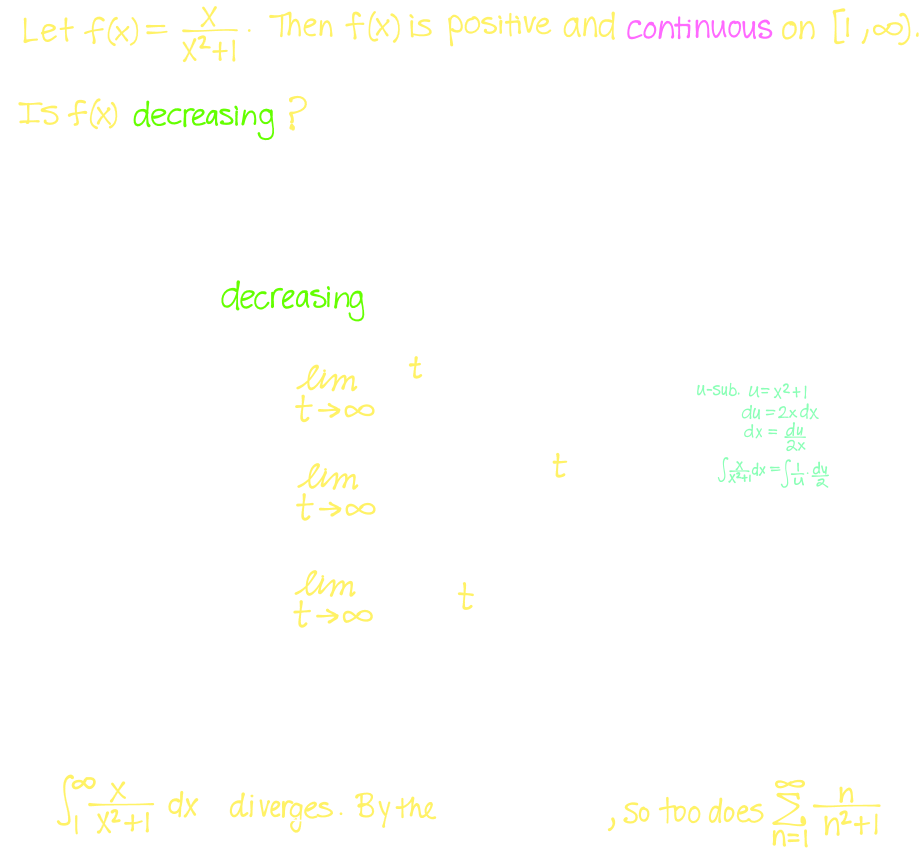 Let f(x) = x/(x²+1). Then f(x) is positive and continuous on [1, ∞).
Is f(x) decreasing?
decreasing
lim t→∞ t
lim t→∞ t
lim t→∞ t
u-sub. u = x²+1
du = 2x dx
dx = du/2x
∫ x/(x²+1) dx = ∫ 1/u · du/2
∫₁^∞ x/(x²+1) dx diverges. By the , so too does ∑_{n=1}^∞ n/(n²+1)